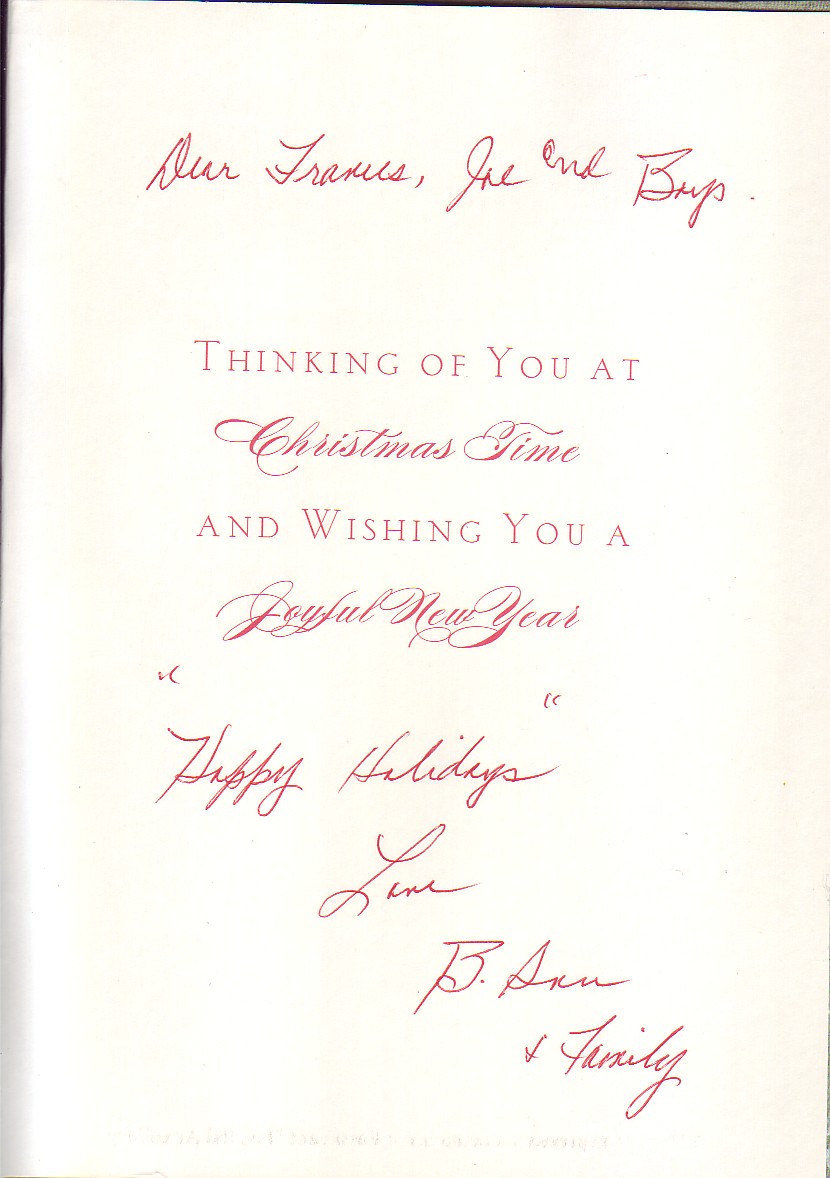 Dear Frances, Joe and Boys.
THINKING OF YOU AT
Christmas Time
AND WISHING YOU A
Joyful New Year
"Happy Holidays"
Love
B. Ann
+ Family